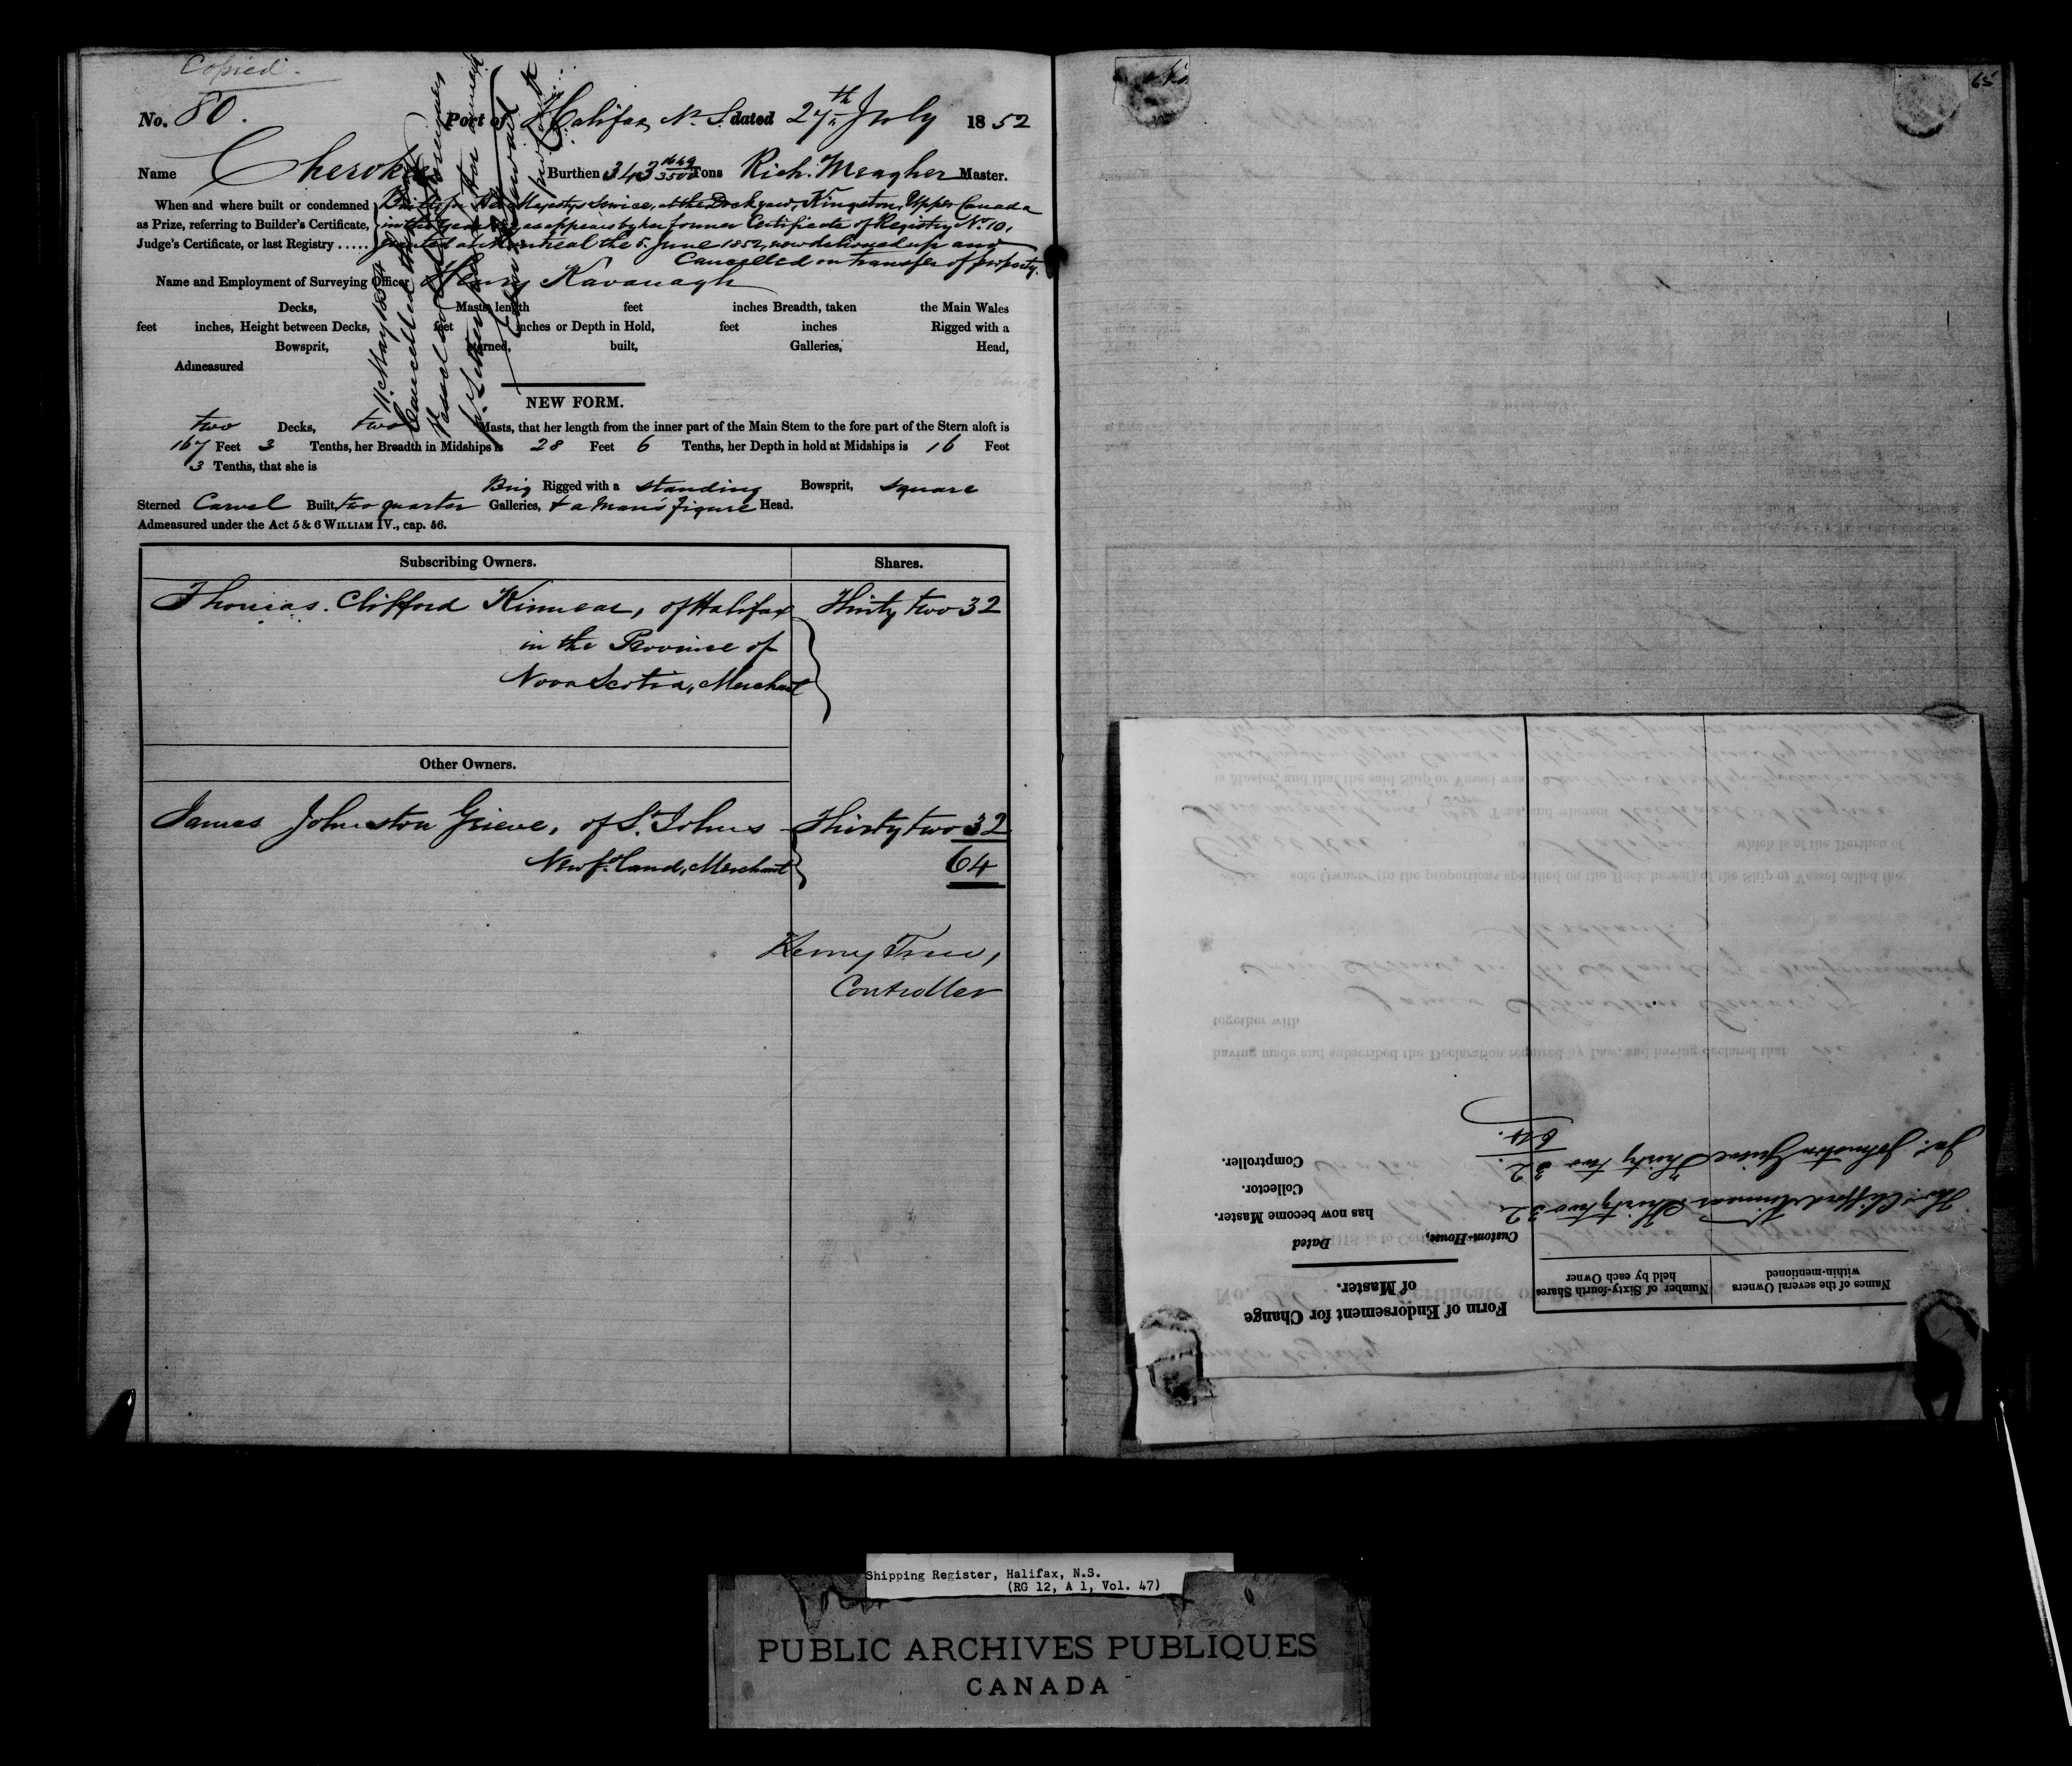 Copied.
No. 80. Port of Halifax N. S. dated 27th July 1852
Name Cherokee Burthen 343 1649/3500 Tons Rich. Meagher Master.
When and where built or condemned
as Prize, referring to Builder's Certificate,
Judge's Certificate, or last Registry .....
Built for Her Majestys Service, at the Dockyard, Kingston, Upper Canada
in the year as appears by her former Certificate of Registry No. 10,
granted at Montreal the 5. June 1852, now delivered up and
Cancelled on transfer of property.
Name and Employment of Surveying Officer Henry Kavanagh
Decks, Masts, length feet inches Breadth, taken the Main Wales
feet inches, Height between Decks, feet inches or Depth in Hold, feet inches Rigged with a
Bowsprit, Sterned, built, Galleries, Head,
Admeasured
11. May 1854
Cancelled
Vessel sold
NEW FORM.
two Decks, two Masts, that her length from the inner part of the Main Stem to the fore part of the Stern aloft is
167 Feet 3 Tenths, her Breadth in Midships is 28 Feet 6 Tenths, her Depth in hold at Midships is 16 Feet
3 Tenths, that she is
Brig Rigged with a standing Bowsprit, square
Sterned Carvel Built, two quarter Galleries, & a Man's figure Head.
Admeasured under the Act 5 & 6 WILLIAM IV., cap. 56.
Subscribing Owners. Shares.
Thomas. Clifford Kinnear, of Halifax Thirty two 32
in the Province of
Nova Scotia, Merchant
Other Owners.
James Johnston Grieve, of St. Johns Thirty two 32
Newfoland, Merchant 64
Henry Trew,
Controller
65
Form of Endorsement for Change
of Master.
Custom-House, Dated
has now become Master.
Collector.
Comptroller.
Names of the several Owners
within-mentioned
Number of Sixty-fourth Shares
held by each Owner
Thos. Clifford Kinnear Thirty two 32
Jas. Johnston Grieve Thirty two 32.
64.
having made and subscribed the Declaration required by Law, and having declared that he
together with
sole Owners (in the proportions specified on the Back hereof) of the Ship or Vessel called the
which is of the Burthen of
Tons, and whereof
is Master, and that the said Ship or Vessel was
Shipping Register, Halifax, N.S.
(RG 12, A 1, Vol. 47)
PUBLIC ARCHIVES PUBLIQUES
CANADA